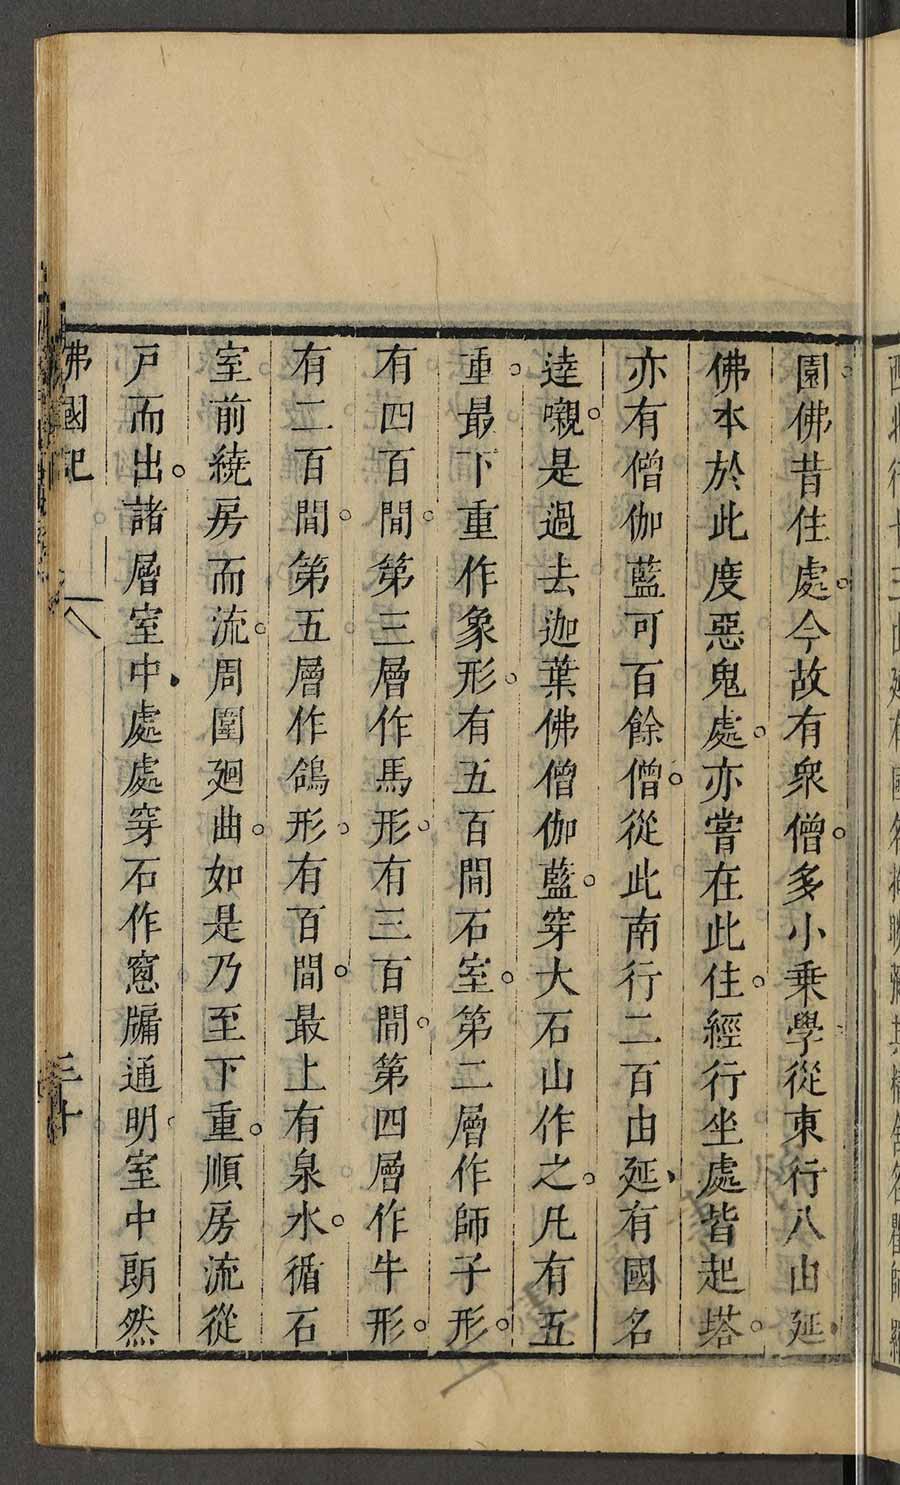 園佛昔住處今故有衆僧多小乗學從東行八由延
佛本於此度惡鬼處亦嘗在此住經行坐處皆起塔
亦有僧伽藍可百餘僧從此南行二百由延有國名
達嚫是過去迦葉佛僧伽藍穿大石山作之凡有五
重最下重作象形有五百間石室第二層作師子形
有四百間第三層作馬形有三百間第四層作牛形
有二百間第五層作鴿形有百間最上有泉水循石
室前繞房而流周圍廻曲如是乃至下重順房流從
戸而出諸層室中處處穿石作窻牖通明室中朗然
佛國記
三十